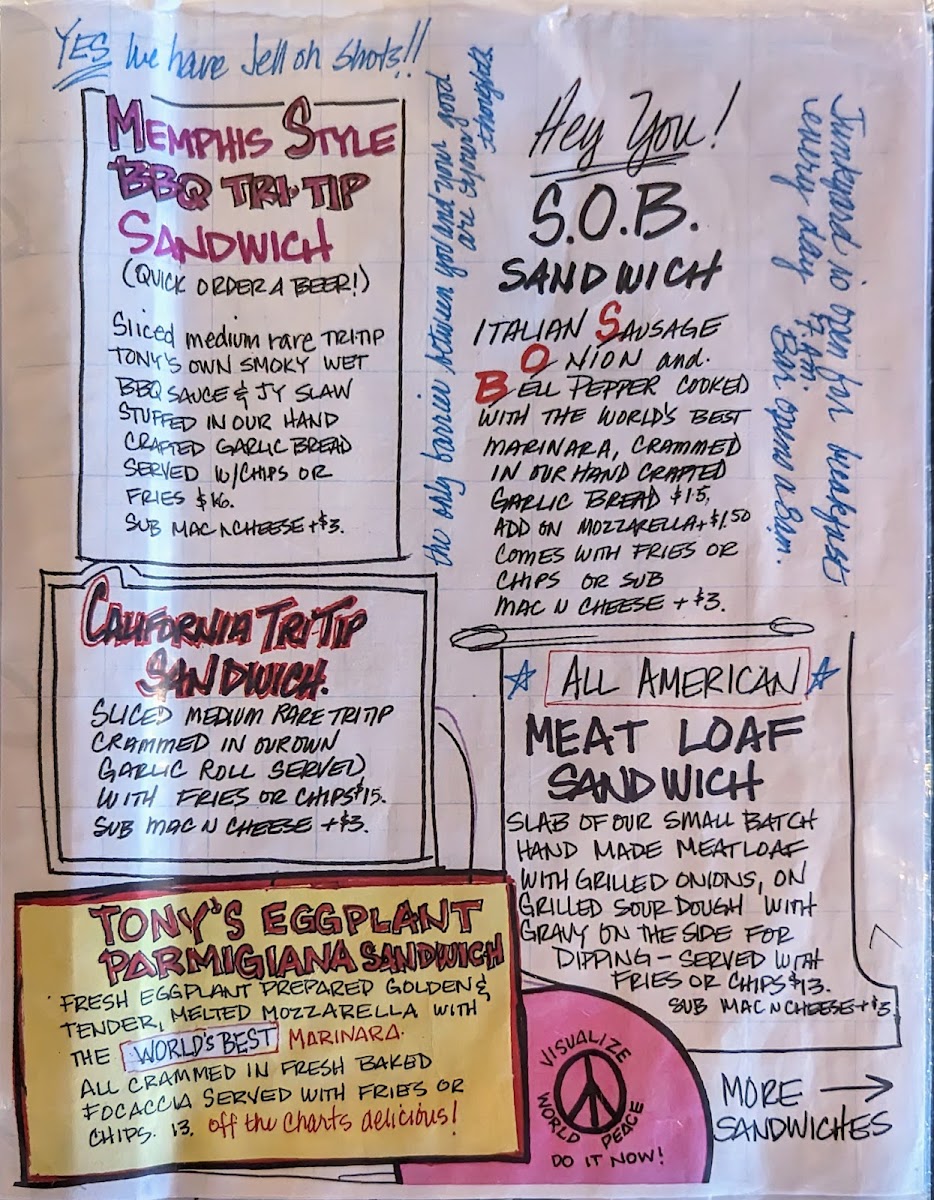 YES We have Jell oh shots!!
MEMPHIS STYLE
BBQ TRI-TIP
SANDWICH
(QUICK ORDER A BEER!)
Sliced medium rare TRI-TIP
TONY'S OWN SMOKY WET
BBQ SAUCE & JY SLAW
STUFFED IN OUR HAND
CRAFTED GARLIC BREAD
SERVED W/CHIPS OR
FRIES $16.
SUB MAC N CHEESE +$3.
the only barrier between you and your good
are sepurr thoughts
Hey You!
S.O.B.
SANDWICH
ITALIAN SAUSAGE
ONION and
BELL PEPPER COOKED
WITH THE WORLD'S BEST
MARINARA, CRAMMED
IN OUR HAND CRAFTED
GARLIC BREAD $15,
ADD ON MOZZARELLA +$1.50
COMES WITH FRIES OR
CHIPS OR SUB
MAC N CHEESE + $3.
Junkyard is open for breakfasts
every day 7 AM.
Bar opens a 8am.
CALIFORNIA TRI-TIP
SANDWICH.
SLICED MEDIUM RARE TRI TIP
CRAMMED IN OUR OWN
GARLIC ROLL SERVED
WITH FRIES OR CHIPS $15.
SUB MAC N CHEESE +$3.
ALL AMERICAN
MEAT LOAF
SANDWICH
SLAB OF OUR SMALL BATCH
HAND MADE MEATLOAF
WITH GRILLED ONIONS, ON
GRILLED SOUR DOUGH WITH
GRAVY ON THE SIDE FOR
DIPPING - SERVED WITH
FRIES OR CHIPS $13.
SUB MAC N CHEESE +$3
TONY'S EGGPLANT
PARMIGIANA SANDWICH
FRESH EGGPLANT PREPARED GOLDEN &
TENDER, MELTED MOZZARELLA WITH
THE WORLD'S BEST MARINARA.
ALL CRAMMED IN FRESH BAKED
FOCACCIA SERVED WITH FRIES OR
CHIPS. 13. off the charts delicious!
VISUALIZE
WORLD PEACE
DO IT NOW!
MORE
SANDWICHES